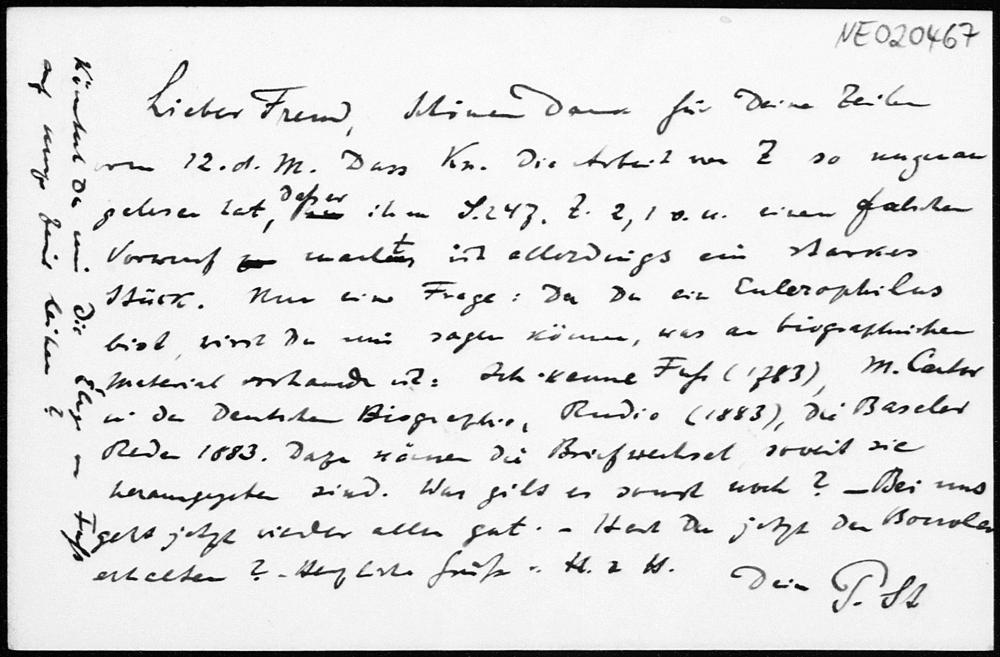 NE020467
Lieber Freund, schönen Dank für Deine Zeilen
vom 12. d. M. Dass Kn. die Arbeit von Z so ungenau
gelesen hat, dass er ihm S. 247, Z. 2, 1 v. u. einen falschen
Vorwurf macht, ist allerdings ein starkes
Stück. Nur eine Frage: Da Du ein Eulerophilus
bist, wirst Du mir sagen können, was an biographischen
Material vorhanden ist: Ich kenne Fuß (1783), M. Cantor
in der Deutschen Biographie, Rudio (1883), die Baseler
Reden 1883. Dazu kämen die Briefwechsel soweit sie
herausgegeben sind. Was gibt es sonst noch? – Bei uns
geht jetzt wieder alles gut. – Hast Du jetzt den
erhalten? – Herzliche Grüße v. H. z H.
Dein P. St
Könntest Du mir die Eloge v. Fuß
auf einige Zeit leihen?